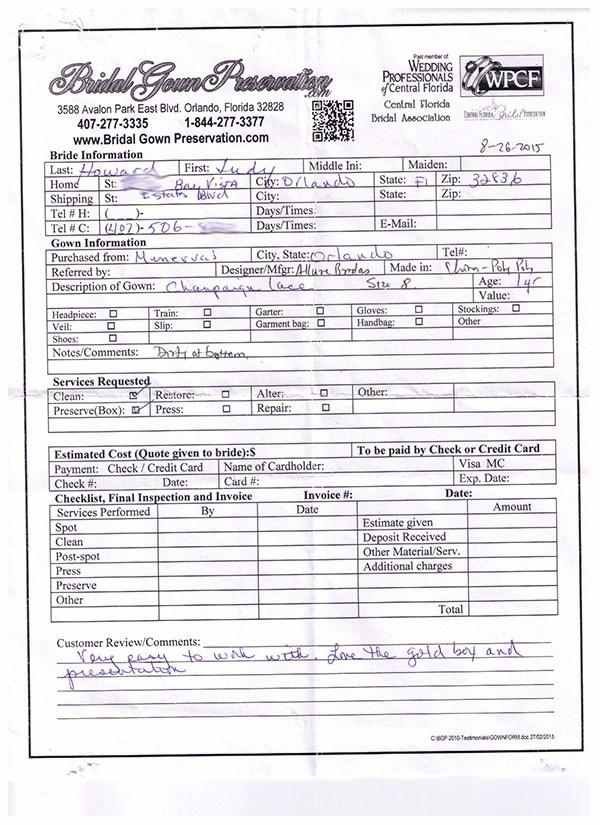 Bridal Gown Preservation.com
Past member of
WEDDING
PROFESSIONALS
of Central Florida
WPCF
3588 Avalon Park East Blvd. Orlando, Florida 32828
Central Florida
Bridal Association
407-277-3335 1-844-277-3377
www.Bridal Gown Preservation.com
8-26-2015
Bride Information
Last: Howard First: Judy Middle Ini: Maiden:
Home St: Bay Vista City: Orlando State: Fl Zip: 32836
Shipping St: Estates Blvd City: State: Zip:
Tel # H: (___)- Days/Times:
Tel # C: (407)-506- Days/Times: E-Mail:
Gown Information
Purchased from: Minerva's City, State: Orlando Tel#:
Referred by: Designer/Mfgr: Allure Bridas Made in: Poly
Description of Gown: Champaign Lace Size 8 Age: 1yr
Value:
Headpiece: Train: Garter: Gloves: Stockings:
Veil: Slip: Garment bag: Handbag: Other
Shoes:
Notes/Comments: Dirty at bottom,
Services Requested
Clean: Restore: Alter: Other:
Preserve(Box): Press: Repair:
Estimated Cost (Quote given to bride):$ To be paid by Check or Credit Card
Payment: Check / Credit Card Name of Cardholder: Visa MC
Check #: Date: Card #: Exp. Date:
Checklist, Final Inspection and Invoice Invoice #: Date:
Services Performed By Date Amount
Spot Estimate given
Clean Deposit Received
Post-spot Other Material/Serv.
Press Additional charges
Preserve
Other Total
Customer Review/Comments:
Very easy to work with. Love the gold box and
presentation
C:\BGP 2010-Testimonials\GOWNFORM.doc 27/02/2015